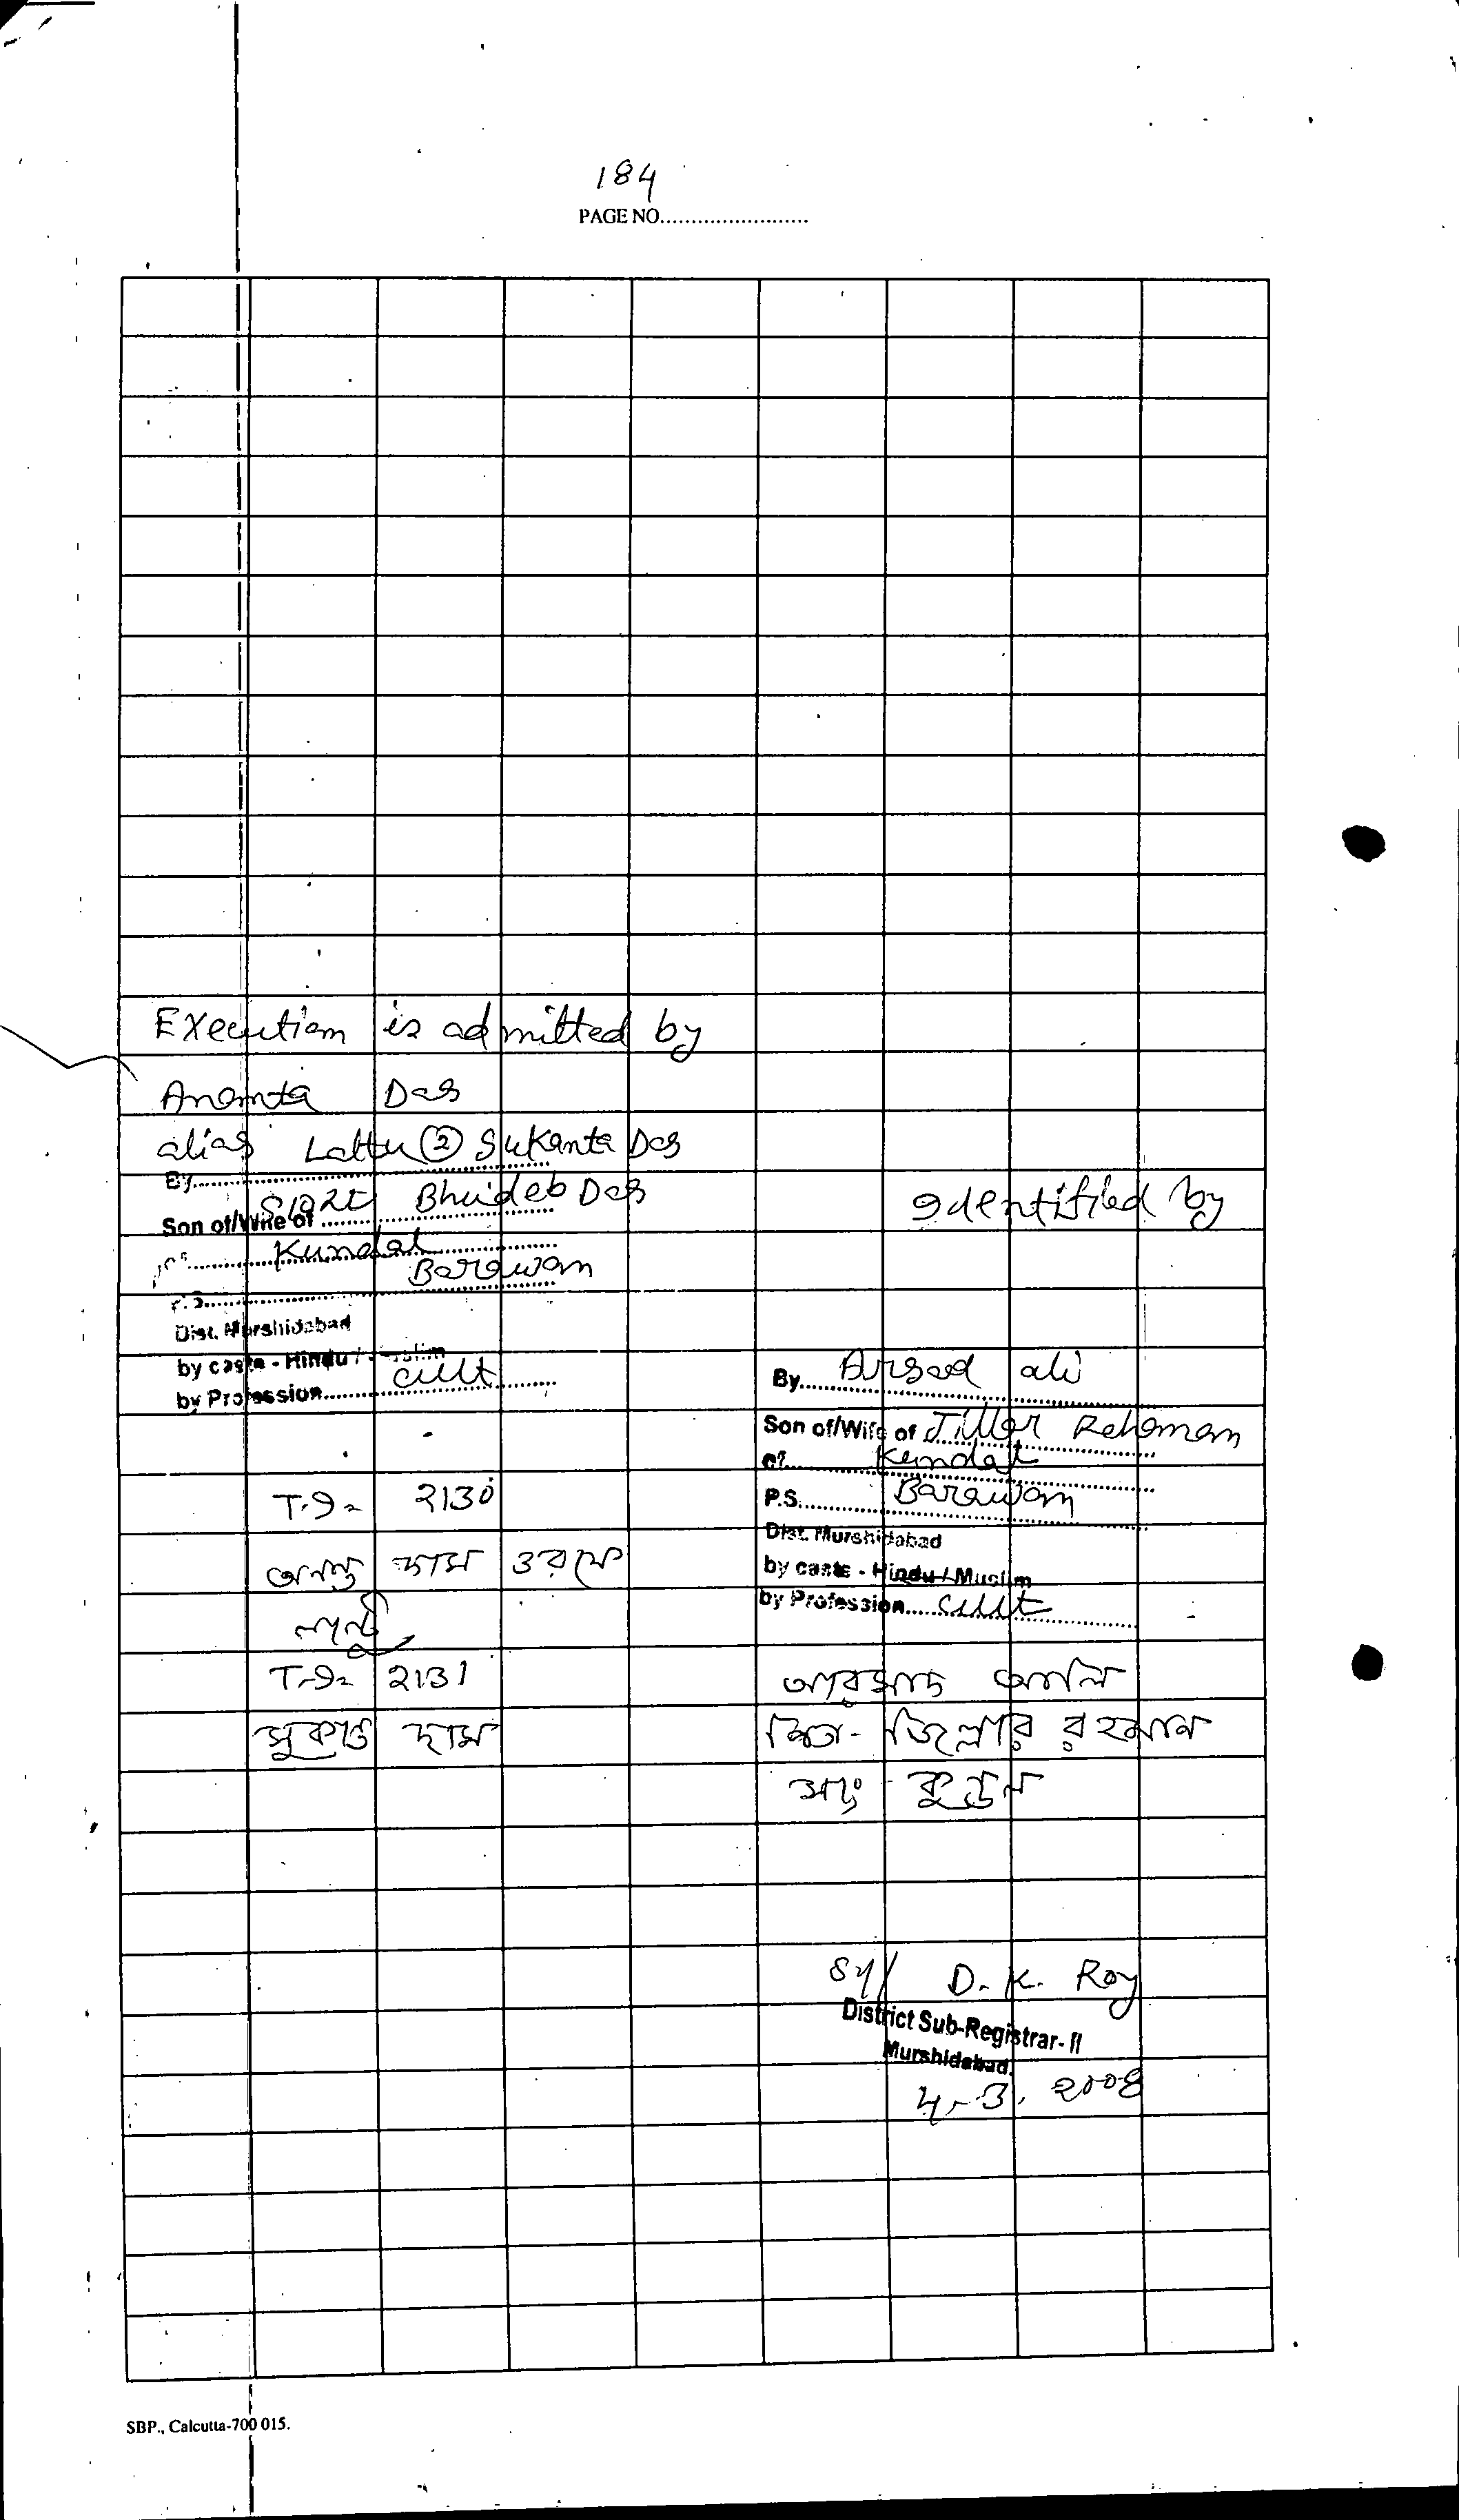 184
PAGE NO........................
Execution is admitted by
Ananta Das
alias Lattu (2) Sukanta Das
By........................
Son of/Wife of Bhudeb Das
of Kundal
P.S. Barawan
Dist. Murshidabad
by caste - Hindu / Muslim
by Profession Cult
T.I. 2130
অনন্ত দাস ওরফে
লাট্টু
T.I. 2131
সুকান্ত দাস
Identified by
By Arsad ali
Son of/Wife of Jillar Rehaman
of Kundal
P.S. Barawan
Dist. Murshidabad
by caste - Hindu / Muslim
by Profession Cult
আরসাদ আলি
পিতা - জিল্লার রহমান
সাং - কুন্ডল
Sd/ D. K. Roy
District Sub-Registrar-II
Murshidabad.
4.3.2008
SBP., Calcutta-700 015.